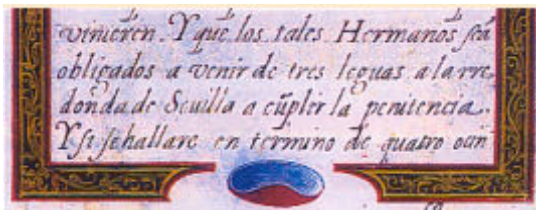 vinieren. Y que los tales Hermanos seã
obligados a venir de tres leguas a la rre,
donda de Sevilla a cũplir la penitencia.
Y si se hallare en termino de quatro o cin
co